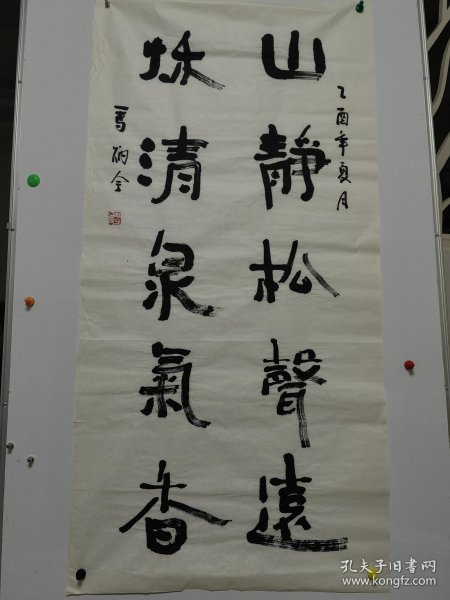 乙酉年夏月
山靜松聲遠
秌清泉氣香
馬炳全
孔夫子旧书网
www.kongfz.com